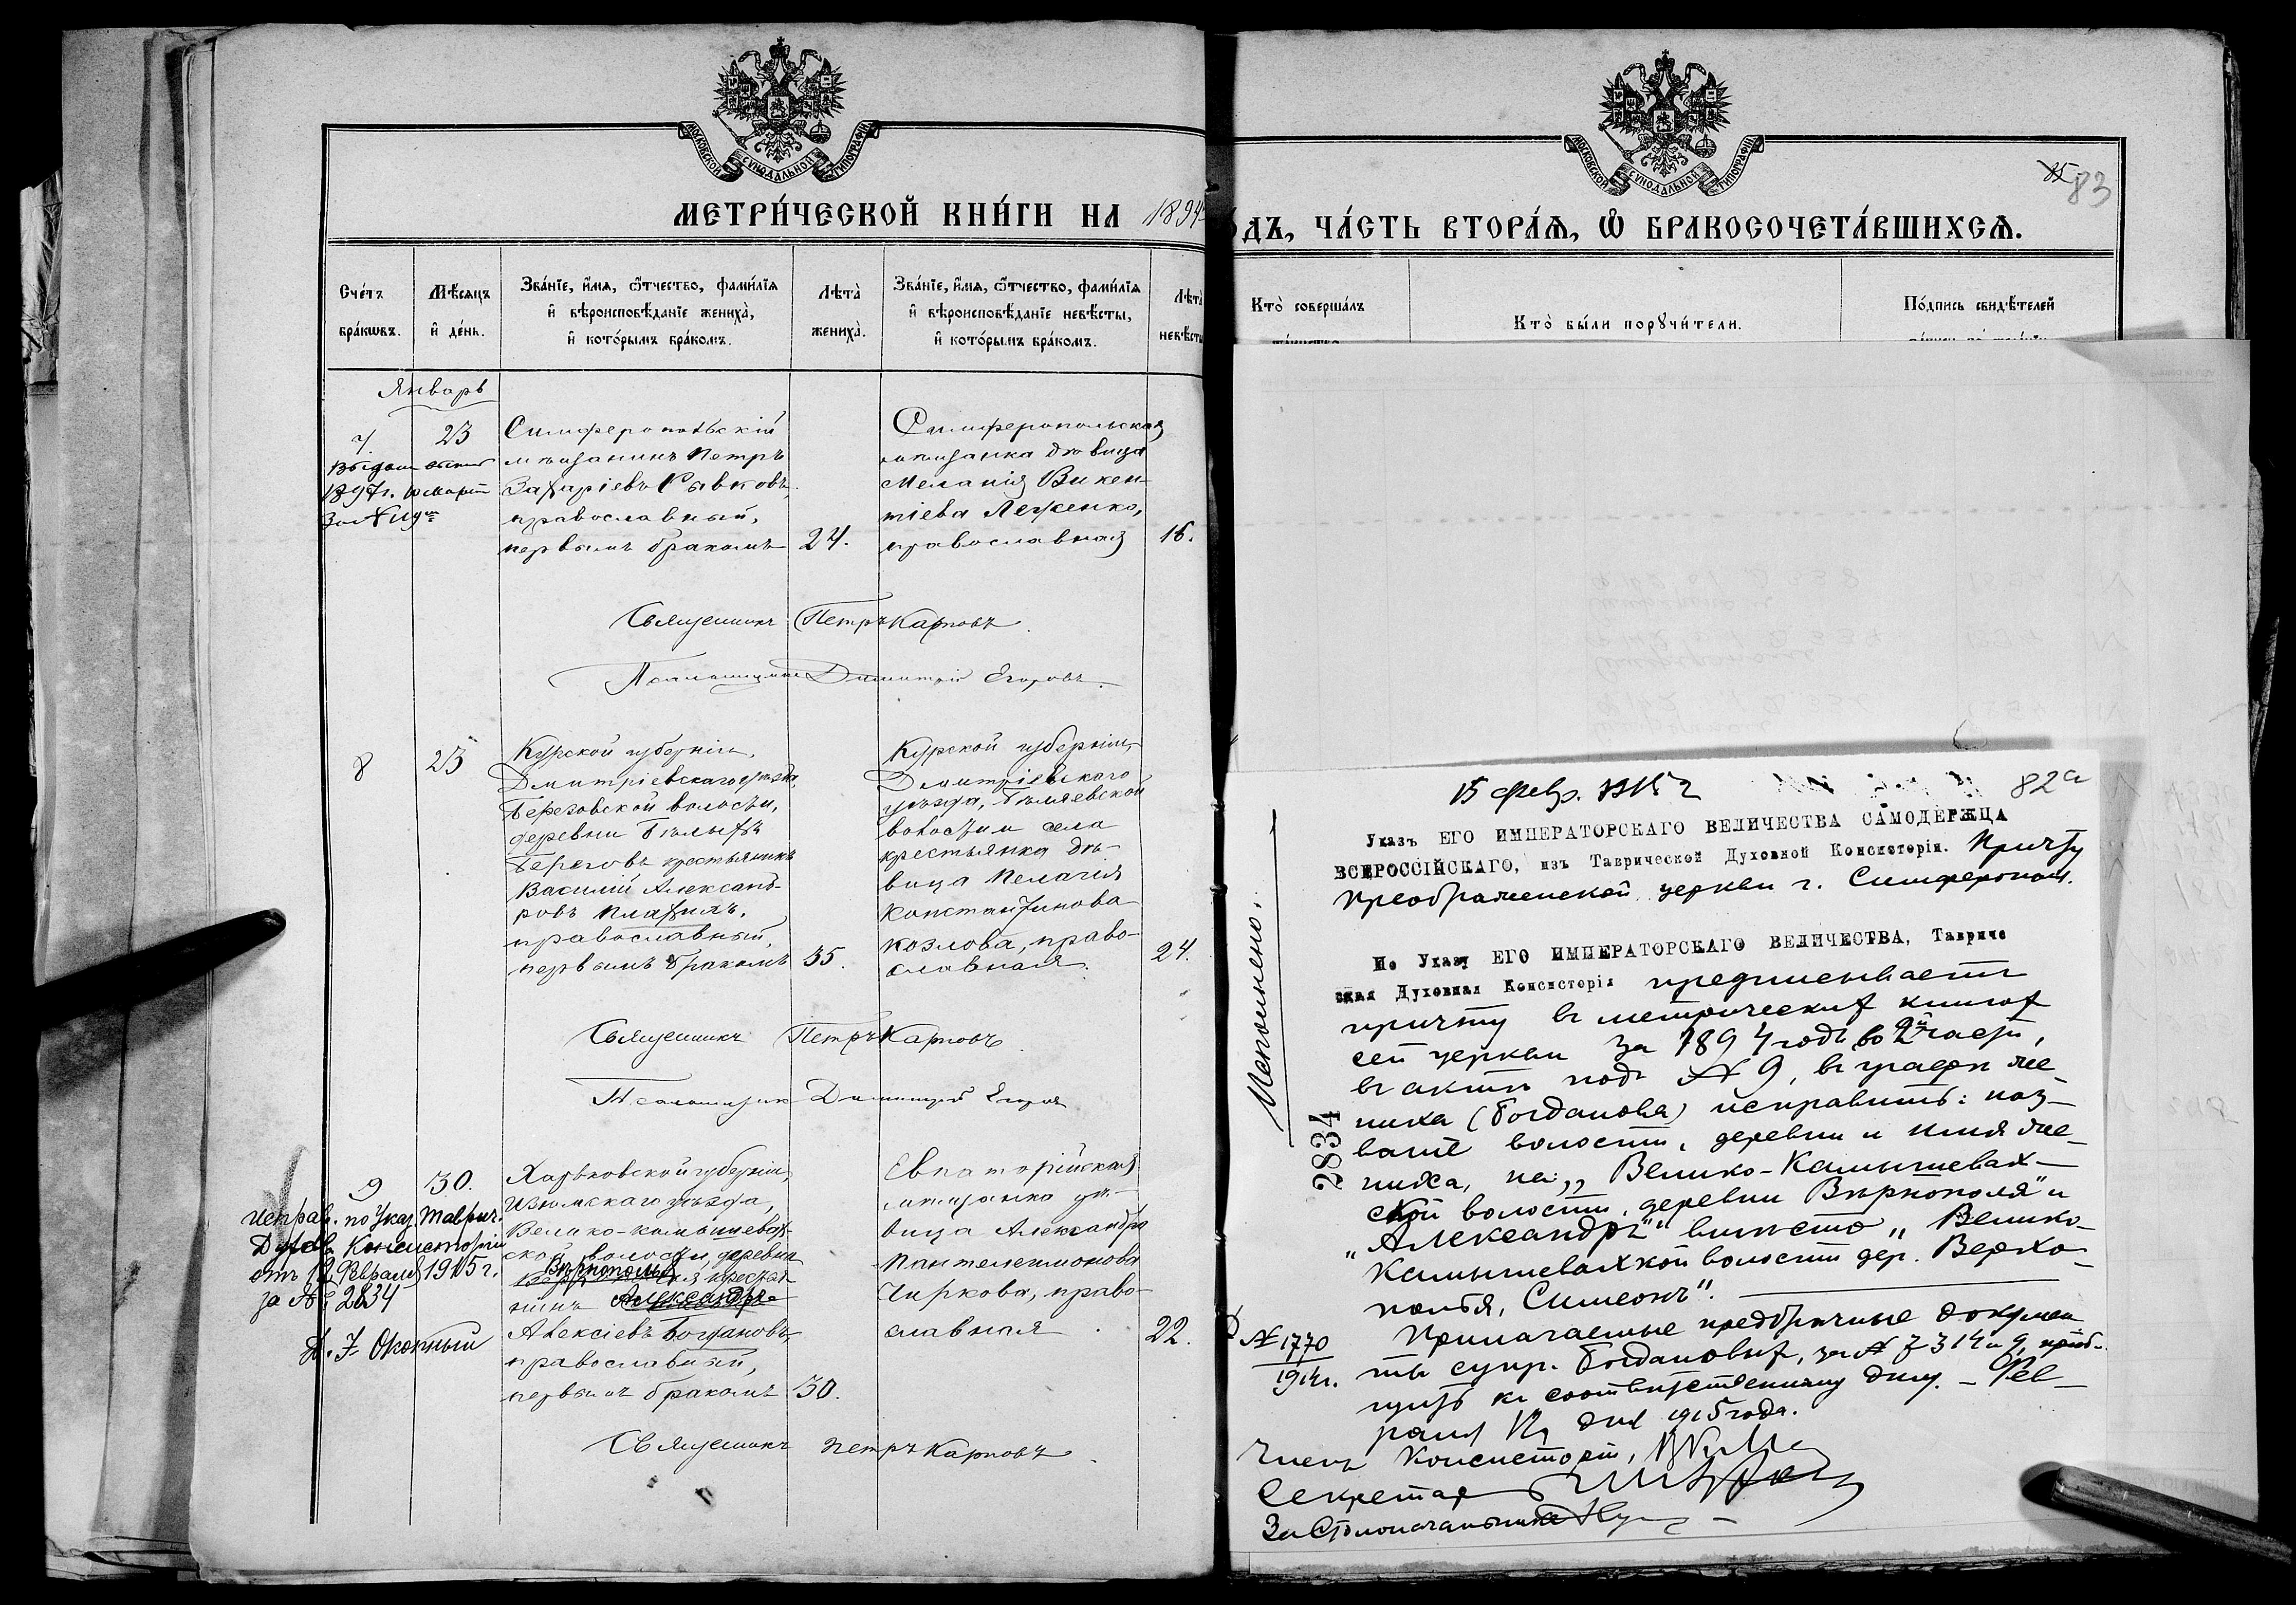 МОСКОВСКОЙ СУНОДАЛЬНОЙ ТИПОГРАФІИ
МЕТРИ́ЧЕСКОЙ КНИ́ГИ НА 1894
Сче́тъ бра́кѡвъ.
Мѣ́сяцъ и҆ де́нь.
Зва́нїе, и҆́мѧ, ѻ҆́тчество, фами́лїѧ
и҆ вѣроисповѣ́данїе жениха̀,
и҆ кото́рымъ бра́комъ.
Лѣта̀ жениха̀.
Зва́нїе, и҆́мѧ, ѻ҆́тчество, фами́лїѧ
и҆ вѣроисповѣ́данїе невѣ́сты,
и҆ кото́рымъ бра́комъ.
Лѣта̀ невѣсты
Январь
7. 23
1897г. 10 Март
за №
Симферопольскій
мѣщанинъ Петръ
Захаріевъ Рывковъ,
православный,
первымъ бракомъ 24.
Симферопольская
мѣщанка дѣвица
Меланія Викен-
тіева Леженко,
православная 16.
Священникъ Петръ Карповъ.
Псаломщикъ Димитрій Егоровъ.
8 23
Курской губерніи,
Дмитріевскаго уѣзда,
Березовской волости,
деревни Бѣлыхъ
Береговъ крестьянинъ
Василій Александ-
ровъ
православный,
первымъ бракомъ 35.
Курской губерніи,
Дмитріевскаго
уѣзда, Бѣляевской
волости села
крестьянка дѣ-
вица Пелагія
Константинова
Козлова, право-
славная. 24.
Священникъ Петръ Карповъ
Псаломщикъ Димитрій Егоровъ
9 30.
Исправ. по Указ. Таврич.
Духов. Консисторіи
отъ 12 Февраля 1915 г.
за № 2834
Окотный
Харьковской губерніи,
Изюмскаго уѣзда,
Велико-камышевах-
ской волости деревни
Вѣрнополья крестья-
нинъ Александръ
Алексіевъ Богдановъ,
православный,
первымъ бракомъ 30.
Евпаторійская
мѣщанка дѣ-
вица Александра
Пантелеимонова
Чиркова, право-
славная. 22.
Священникъ Петръ Карповъ.
МОСКОВСКОЙ СУНОДАЛЬНОЙ ТИПОГРАФІИ
85 83
О́ДЪ, ЧА́СТЬ ВТОРА́Ѧ, Ѽ БРАКОСОЧЕТА́ВШИХСѦ.
Кто̀ соверша́лъ
Кто̀ бы́ли порꙋчи́тели.
По́дпись свидѣ́телей
15 февр. 1915 г 82а
Указъ ЕГО ИМПЕРАТОРСКАГО ВЕЛИЧЕСТВА САМОДЕРЖЦА
ВСЕРОССІЙСКАГО, изъ Таврической Духовной Консисторіи. Причту
Преображенской церкви г. Симферополя.
По Указу ЕГО ИМПЕРАТОРСКАГО ВЕЛИЧЕСТВА, Тавриче
ская Духовная Консисторія предписываетъ
причту въ метрическихъ книгахъ
сей церкви за 1894 годъ во 2й части,
въ актѣ подъ № 9, въ графѣ же-
ниха (Богданова) исправить: наз-
ваніе волости, деревни и имя же-
ниха, на: „Велико-Камышевах-
ской волости, деревни Вѣрнополя" и
„Александръ" вмѣсто „Велико-
Камышевахской волости дер. Верхо-
полья, Симеонъ".
Прилагаемые предбрачные докумен
ты супр. Богдановыхъ, за № 7314 и 9, пріоб-
щить къ соотвѣтственному дѣлу. – Фев-
раля 12 дня 1915 года.
Исполнено.
2834
№ 1770
1914г.
Членъ Консисторіи,
Секретарь
За Столоначальника